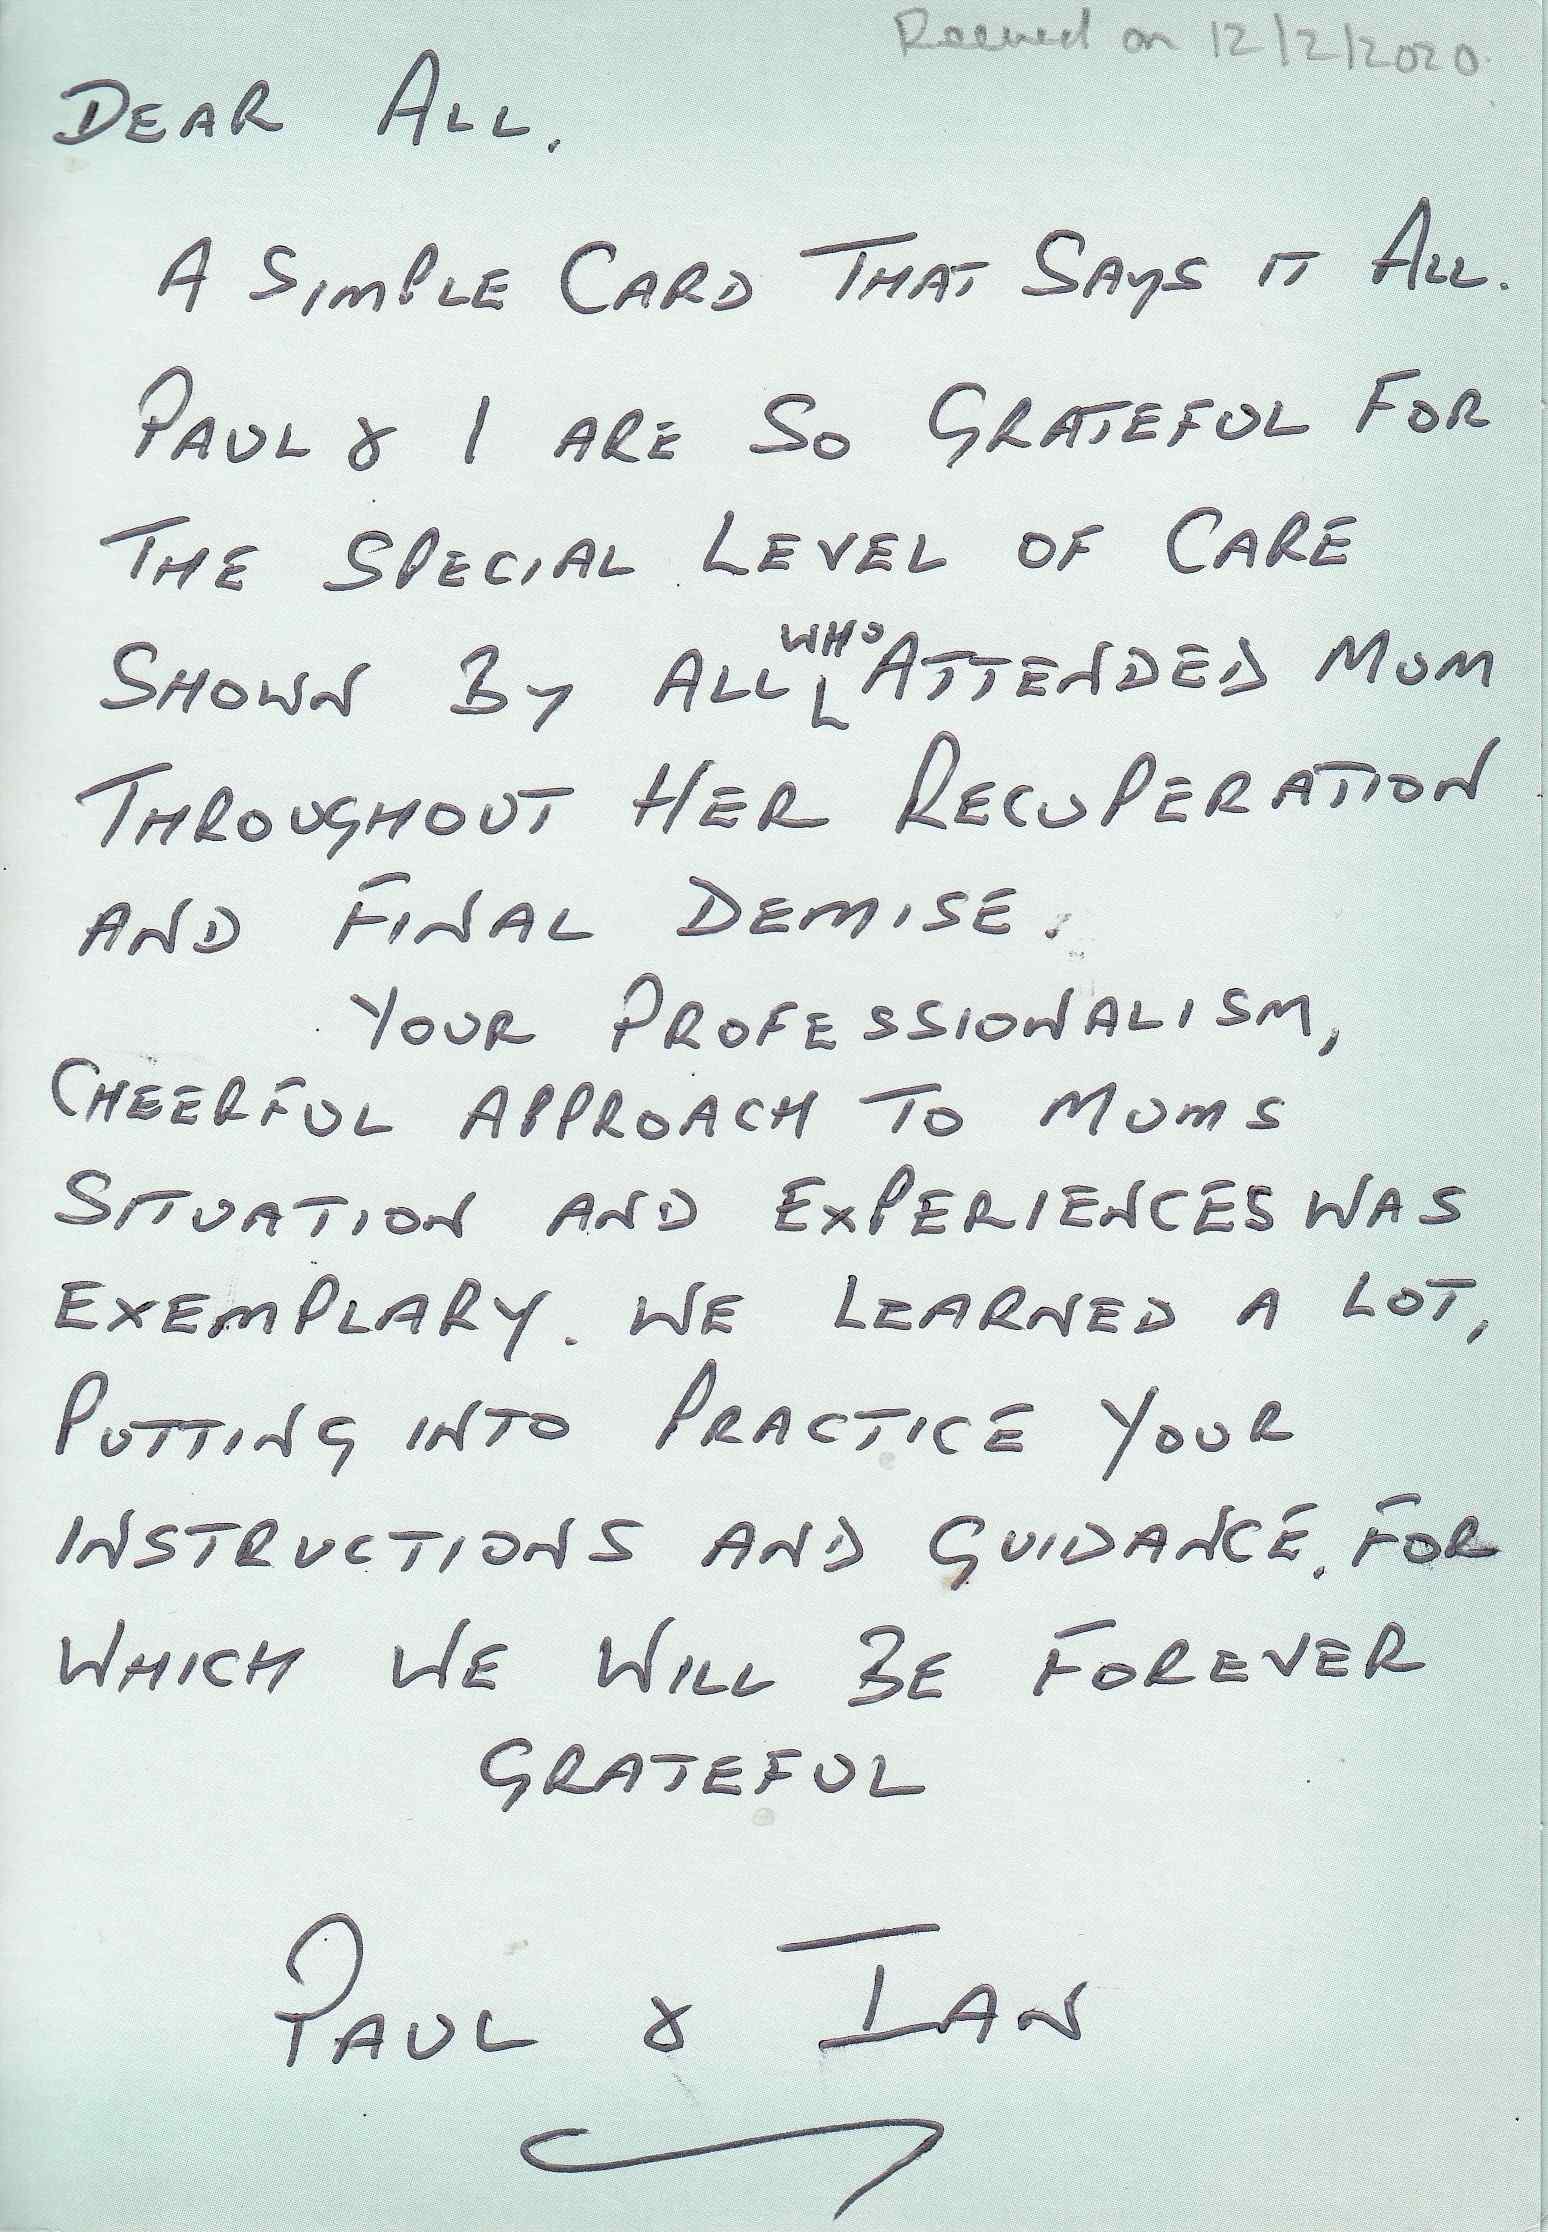 Received on 12/2/2020.
DEAR ALL.
A SIMPLE CARD THAT SAYS IT ALL.
PAUL & I ARE SO GRATEFUL FOR
THE SPECIAL LEVEL OF CARE
SHOWN BY ALL WHO ATTENDED MUM
THROUGHOUT HER RECUPERATION
AND FINAL DEMISE.
YOUR PROFESSIONALISM,
CHEERFUL APPROACH TO MUMS
SITUATION AND EXPERIENCES WAS
EXEMPLARY. WE LEARNED A LOT,
PUTTING INTO PRACTICE YOUR
INSTRUCTIONS AND GUIDANCE. FOR
WHICH WE WILL BE FOREVER
GRATEFUL
PAUL & IAN